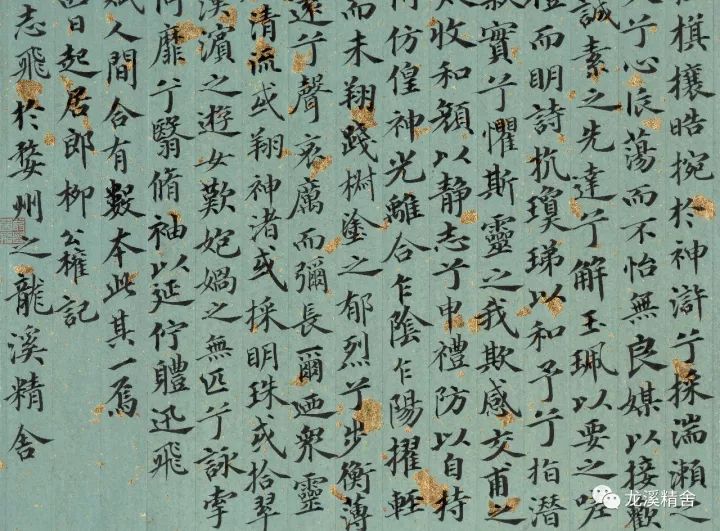 旗攘皓捥於神滸兮採湍瀨之
兮心振蕩而不怡無良媒以接歡
誠素之先達兮解玉珮以要之嗟
禮而明詩抗瓊珶以和予兮指潛
款實兮懼斯靈之我欺感交甫之
收和顏以静志兮申禮防以自持
彷徨神光離合乍陰乍陽擢輕
而未翔踐椒塗之郁烈兮步衡薄
遠兮聲哀厲而彌長爾迺衆靈
清流或翔神渚或採明珠或拾翠
漢濱之遊女歎匏媧之無匹兮詠牽
靡兮翳脩袖以延佇體迅飛
賦人間合有數本此其一焉
四日起居郎柳公權記
志飛於婺州之龍溪精舍
龙溪精舍